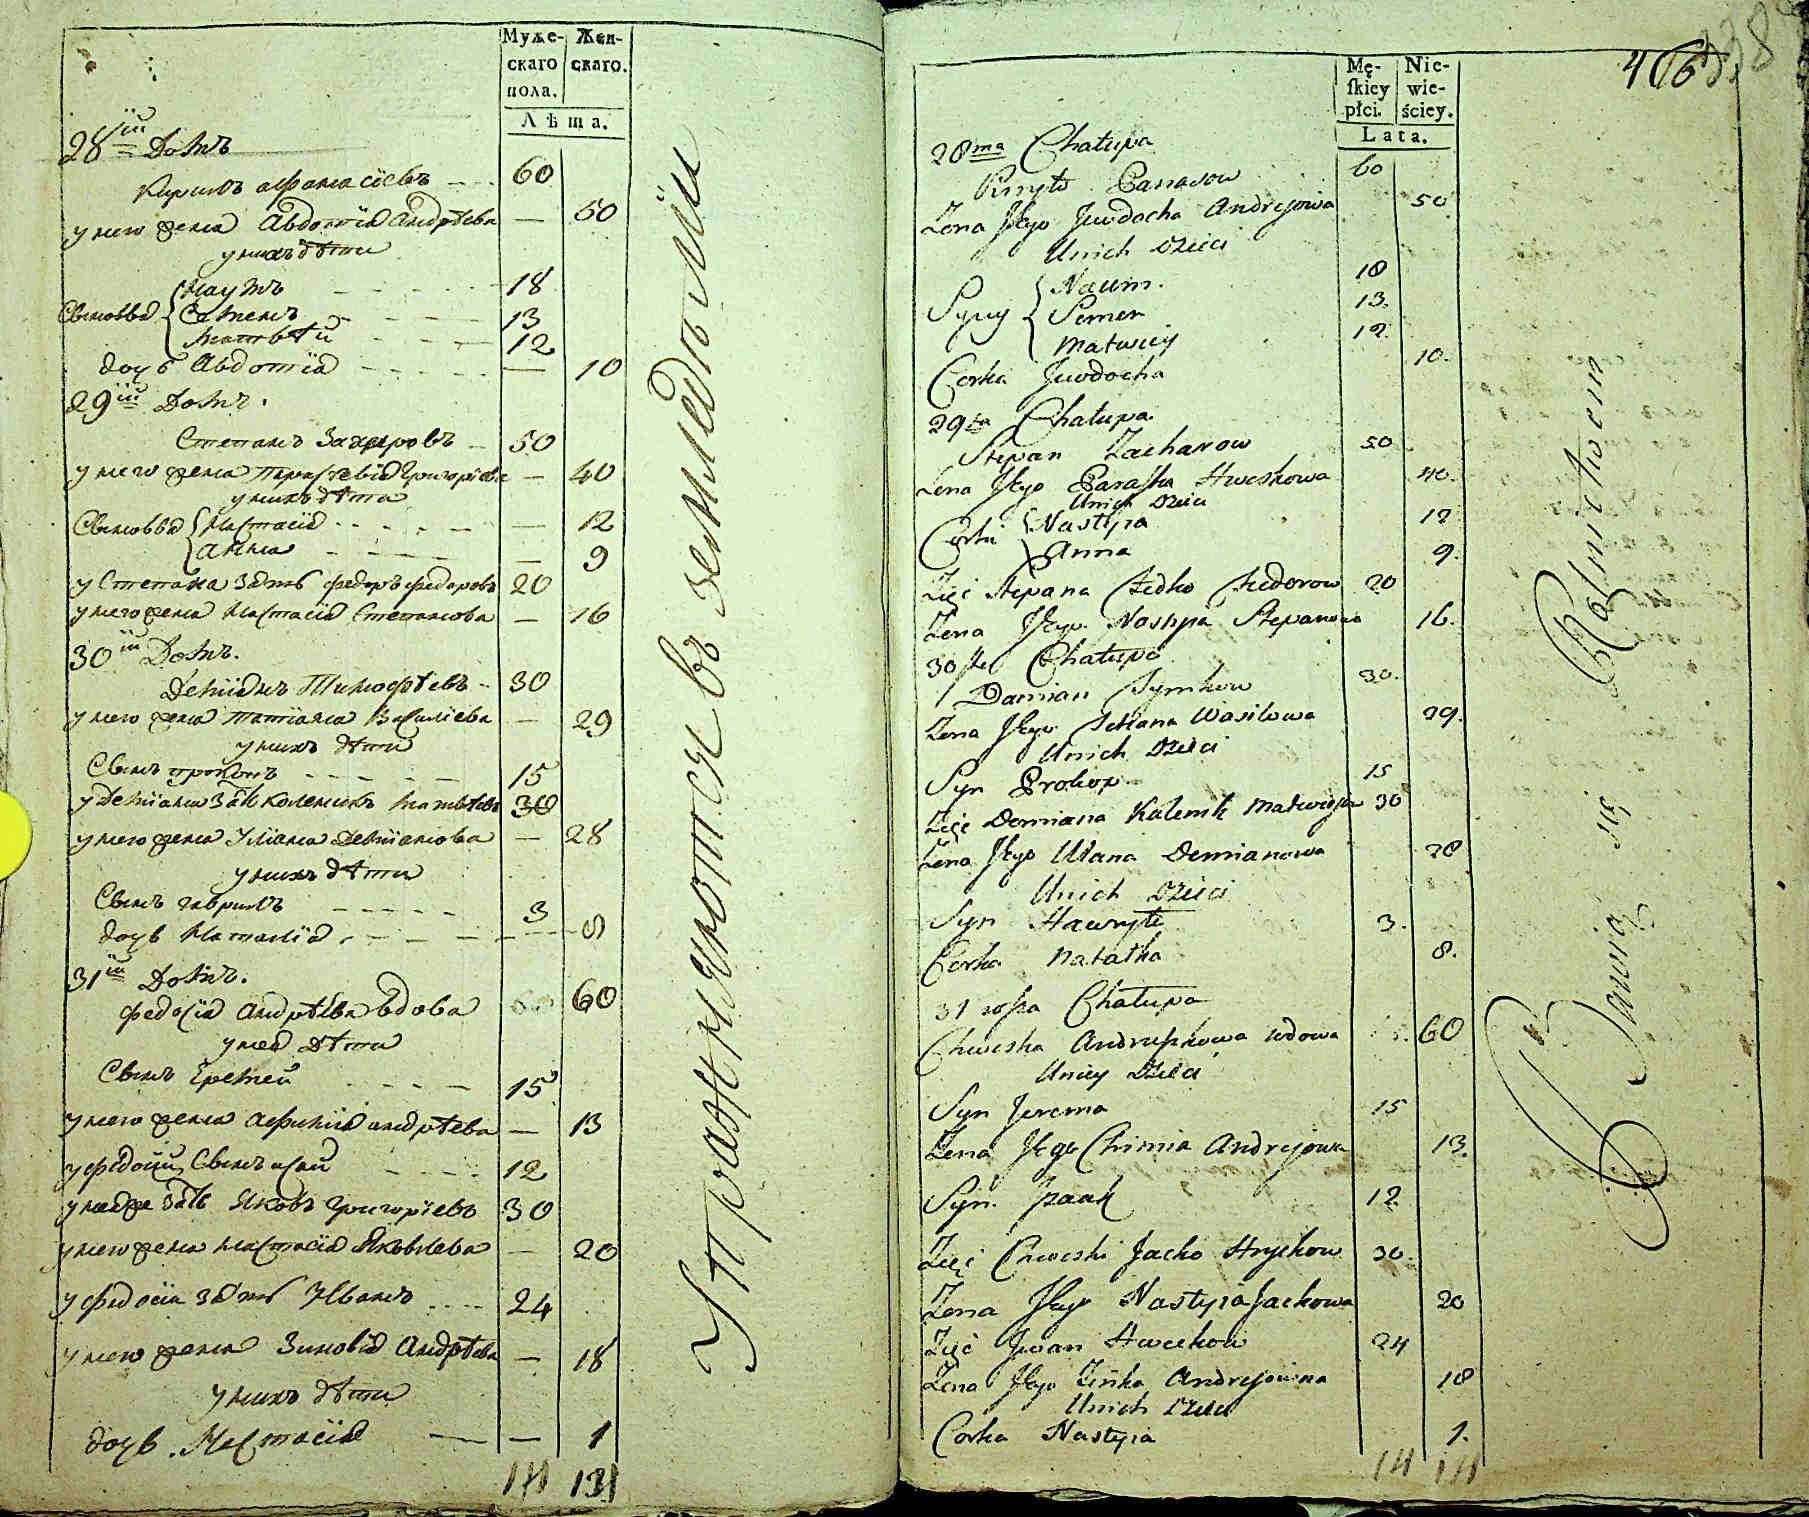 Муже-
скаго
пола.
Жен-
скаго.
Лѣта.
28ій Домъ
Кирилъ Афанасіевъ 60
у него жена Авдотія Андрѣева — 50
у нихъ дѣти
Сыновья
Наумъ 18
Семенъ 13
Матвѣй 12
дочь Авдотія — 10
29ій Домъ.
Степанъ Захаровъ 50
у него жена Григоріева — 40
у нихъ дѣти
Настасія — 12
Анна — 9
у Степана зять Федоръ Федоровъ 20
у него жена Настасія Степанова — 16
30ій Домъ.
Деміянъ Тимофѣевъ 30
у него жена Татіяна Васильева — 29
у нихъ дѣти
Сынъ Прокопъ 15
у Деміяна зять Матвѣевъ 30
у него жена Уліана Деміянова — 28
у нихъ дѣти
Сынъ Гаврилъ 3
дочь Наталія — 8
31ій Домъ.
Федосія Андрѣева вдова 60
у нея дѣти
Сынъ Еремей 15
у него жена Афимія Андрѣева — 13
у Федосіи Сынъ 12
зять Яковъ Григоріевъ 30
у него жена Настасія Яковлева — 20
у Федосіи зять Иванъ 24
у него жена Зиновія Андрѣева — 18
у нихъ дѣти
дочь Настасія — 1
Упражняются въ земледѣліи
406
Mę-
ſkiey
płci.
Nie-
wie-
ściey.
Lata.
28ma Chałupa
Kiryło Panasow 60
Żona Jego Juwdocha Andrejowa 50
Unich Dzieci
Syny
Naum. 18
Semen 13.
Matwiey 12.
Corka Juwdocha 10.
29ta Chałupa
Stepan Zacharow 50
Żona Jego Paraska Hweskowa 40.
Unich Dzieci
Corki
Nastyia 12
Anna 9.
Zięć Stepana Fedko Fedorow 20
Żona Jego Nastyia Stepanowa 16.
30sta Chałupa
Damian Tymkow 30.
Żona Jego Tetiana Wasilowa 29.
Unich Dzieci
Syn Prokop 15
Zięć Demiana Kalenik 30
Żona Jego Ulana Demianowa 28
Unich Dzieci
Syn Hawryło 3.
Corka Natałka 8.
31 Chałupa
Chweska wdowa 60
Uniey Dzieci
Syn Jerema 15
Żona Jego Chimia Andrejowa 13.
Syn. 12
Zięć Chweski Jacko Hryckow 30.
Żona Jego Nastyia Jackowa 20
Zięć Jwan 24
Żona Jego Zińka 18
Unich Dzieci
Corka Nastyia 1.
Bawią się Rolnictwem